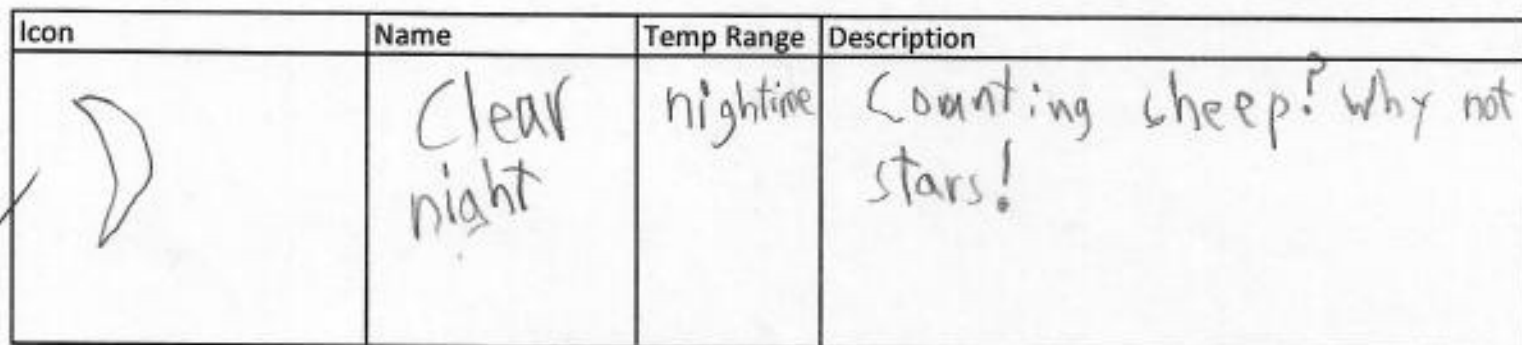 Icon Name Temp Range Description
Clear nightime Counting sheep? Why not
night stars!